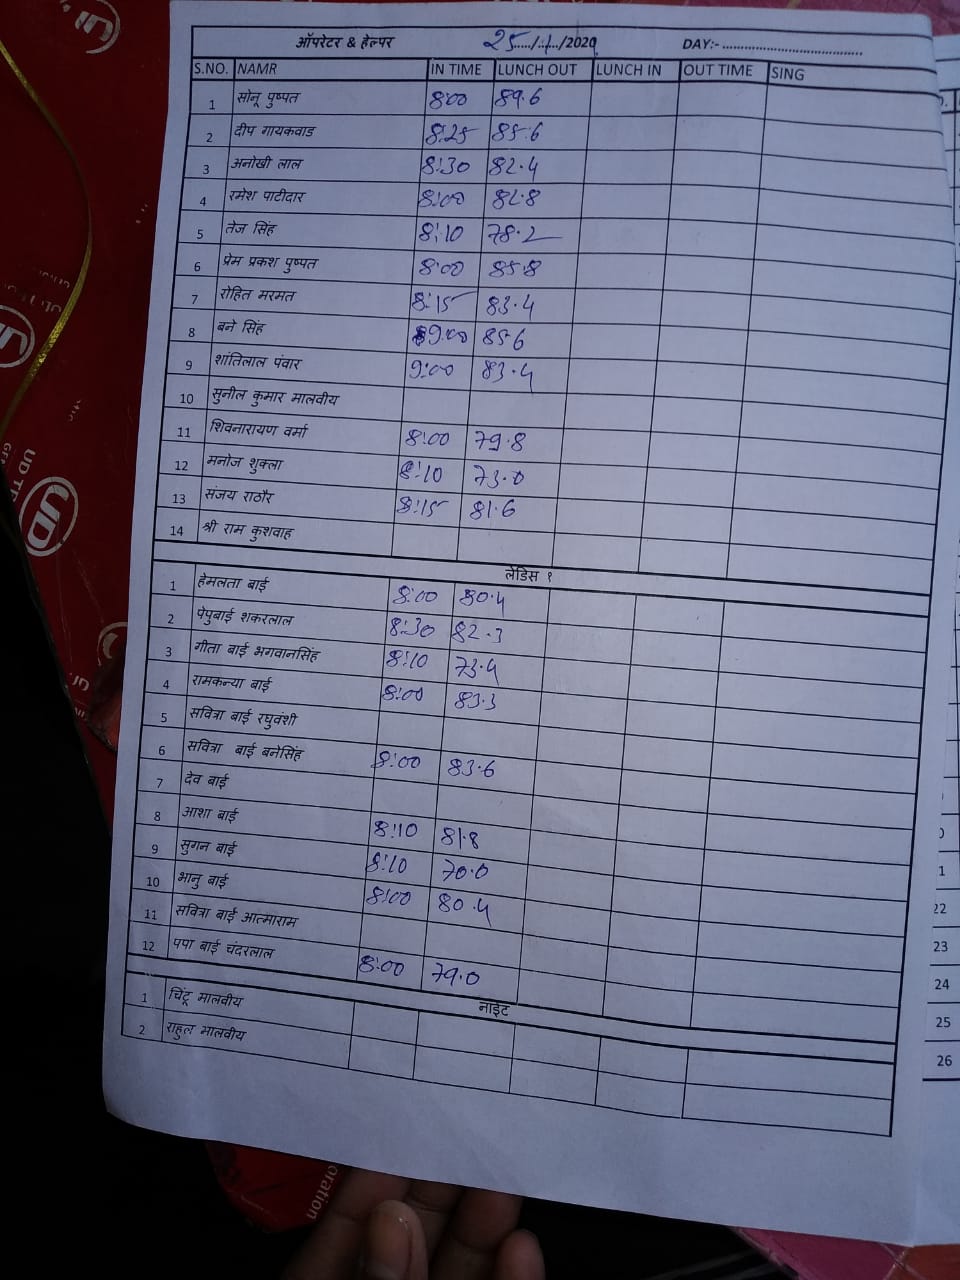 ऑपरेटर & हेल्पर 25..../../../2020 DAY:- ......................................
S.NO. NAMR IN TIME LUNCH OUT LUNCH IN OUT TIME SING
1 सोनू पुष्पत 8:00 89.6
2 दीप गायकवाड 8:25 85.6
3 अनोखी लाल 8:30 82.4
4 रमेश पाटीदार 8:00 82.8
5 तेज सिंह 8:10 78.2
6 प्रेम प्रकश पुष्पत 8:00 85.8
7 रोहित मरमत 8:15 83.4
8 बने सिंह 9:00 85.6
9 शांतिलाल पंवार 9:00 83.4
10 सुनील कुमार मालवीय
11 शिवनारायण वर्मा 8:00 79.8
12 मनोज शुक्ला 8:10 73.0
13 संजय राठौर 8:15 81.6
14 श्री राम कुशवाह
लेडिस १
1 हेमलता बाई 8:00 80.4
2 पेपुबाई शकरलाल 8:30 82.3
3 गीता बाई भगवानसिंह 8:10 73.4
4 रामकन्या बाई 8:00 83.3
5 सवित्रा बाई रघुवंशी
6 सवित्रा बाई बनेसिंह 8:00 83.6
7 देव बाई
8 आशा बाई 8:10 81.8
9 सुगन बाई 8:10 70.0
10 भानु बाई 8:00 80.4
11 सवित्रा बाई आत्माराम
12 पपा बाई चंदरलाल 8:00 79.0
नाईट
1 चिंटू मालवीय
2 राहुल मालवीय
22
23
24
25
26
UD
UD TE
oration